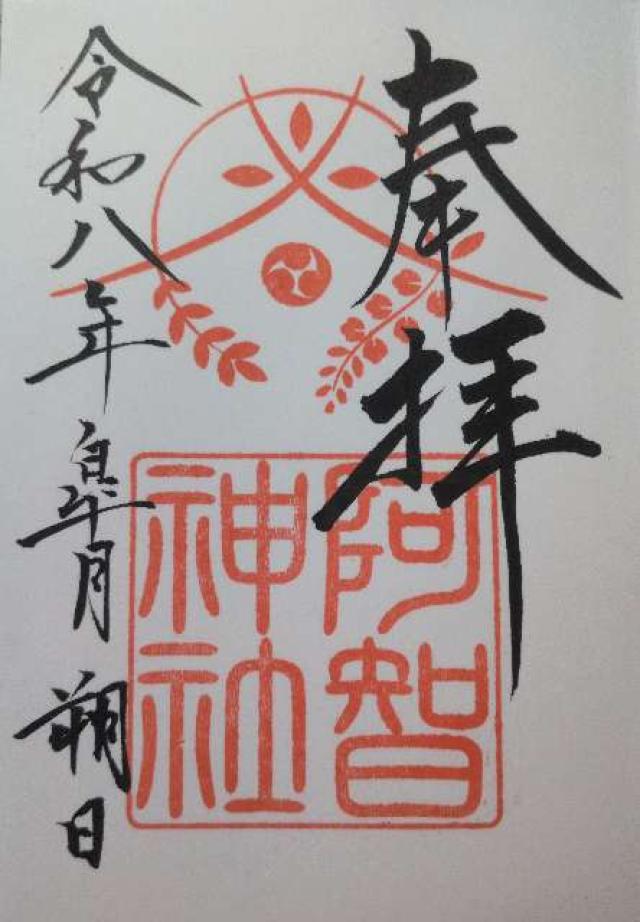 奉拝
阿智
神社
令和八年 皐月 朔日